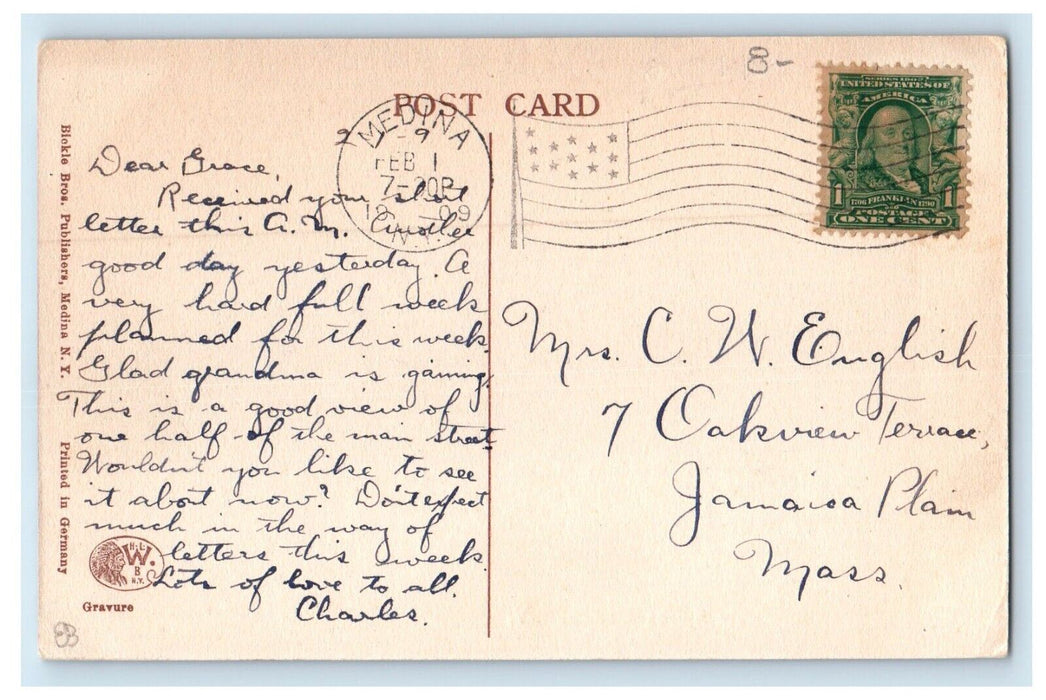 POST CARD
MEDINA
FEB 1
7-30P
1909
N.Y.
SERIES 1902
UNITED STATES OF
AMERICA
1 1
1706 FRANKLIN 1790
POSTAGE
ONE CENT
8-
Dear Grace,
Received your short
letter this A.M. Another
good day yesterday. A
very hard full week
planned for this week.
Glad grandma is gaining.
This is a good view of
one half of the main street
Wouldn't you like to see
it about now? Don't expect
much in the way of
letters this week.
Lots of love to all.
Charles.
Mrs. C. W. English
7 Oakview Terrace,
Jamaica Plain
Mass.
Bickle Bros. Publishers, Medina N.Y. Printed in Germany
H-L
W.
B
N.Y.
Gravure